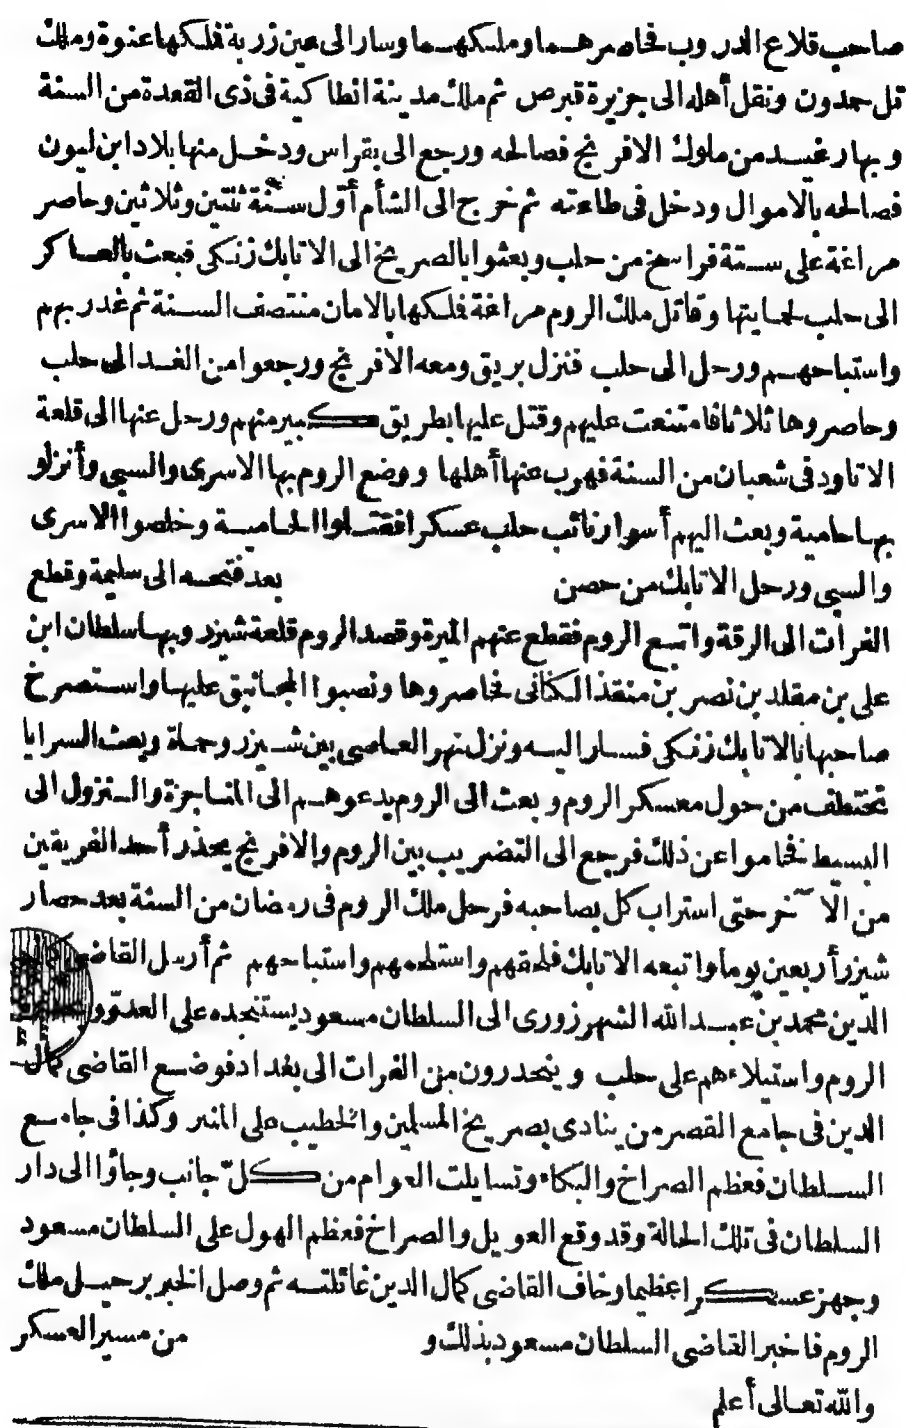 صاحب قلاع الدروب فحاصرهما وملكهما وسار الى عين زربة فلكها عنوة وملك
تل حمدون ونقل أهله الى جزيرة قبرص ثم ملك مدينة انطاكية فى ذى القعدة من السنة
وبها ريمند من ملوك الافرنج فصالحه ورجع الى بقراس ودخل منها بلاد ابن ليون
فصالحه بالاموال ودخل فى طاعته ثم خرج الى الشأم أول سنة ثنتين وثلاثين وحاصر
مراغة على ستة فراسخ من حلب وبعثوا بالصريخ الى الاتابك زنكى فبعث بالعساكر
الى حلب لحمايتها وقاتل ملك الروم مراغة فلكها بالامان منتصف السنة ثم غدر بهم
واستباحهم ورحل الى حلب فنزل بريق ومعه الافرنج ورجعوا من الغد الى حلب
وحاصروها ثلاثا فامتنعت عليهم وقتل عليها بطريق كبير منهم ورحل عنها الى قلعة
الاتاود فى شعبان من السنة فهرب عنها أهلها ووضع الروم بها الاسرى والسبى وأنزلو
بها حامية وبعث اليهم أسوار نائب حلب عسكرا فقتلوا الحامية وخلصوا الاسرى
والسبى ورحل الاتابك من حصن بعد فتحه الى سليمة وقطع
الفرات الى الرقة واتبع الروم فقطع عنهم الميرة وقصد الروم قلعة شيزر وبها سلطان ابن
على بن مقلد بن نصر بن منقذ الكنانى فحاصروها ونصبوا المجانيق عليها واستصرخ
صاحبها بالاتابك زنكى فسار اليه ونزل نهر العاصى بين شيزر وحماة وبعث السرايا
تختطف من حول معسكر الروم وبعث الى الروم يدعوهم الى المناجزة والنزول الى
البسيط فخاموا عن ذلك فرجع الى التضريب بين الروم والافرنج يحذر أحد الفريقين
من الآخر حتى استراب كل بصاحبه فرحل ملك الروم فى رمضان من السنة بعد حصار
شيزر أربعين يوما واتبعه الاتابك فلحقهم واستلحمهم واستباحهم ثم أرسل القاضى
الدين محمد بن عبد الله الشهرزورى الى السلطان مسعود يستنجده على العدو و
الروم واستيلاءهم على حلب وينحدرون من الفرات الى بغداد فوضع القاضى كمال
الدين فى جامع القصر من ينادى بصريخ المسلمين والخطيب على المنبر وكذا فى جامع
السلطان فعظم الصراخ والبكاء وتسايلت العوام من كل جانب وجاؤا الى دار
السلطان فى تلك الحالة وقد وقع العويل والصراخ فعظم الهول على السلطان مسعود
وجهز عسكرا عظيما وخاف القاضى كمال الدين غائلته ثم وصل الخبر برحيل ملك
الروم فاخبر القاضى السلطان مسعود بذلك و من مسير العسكر
والله تعالى أعلم